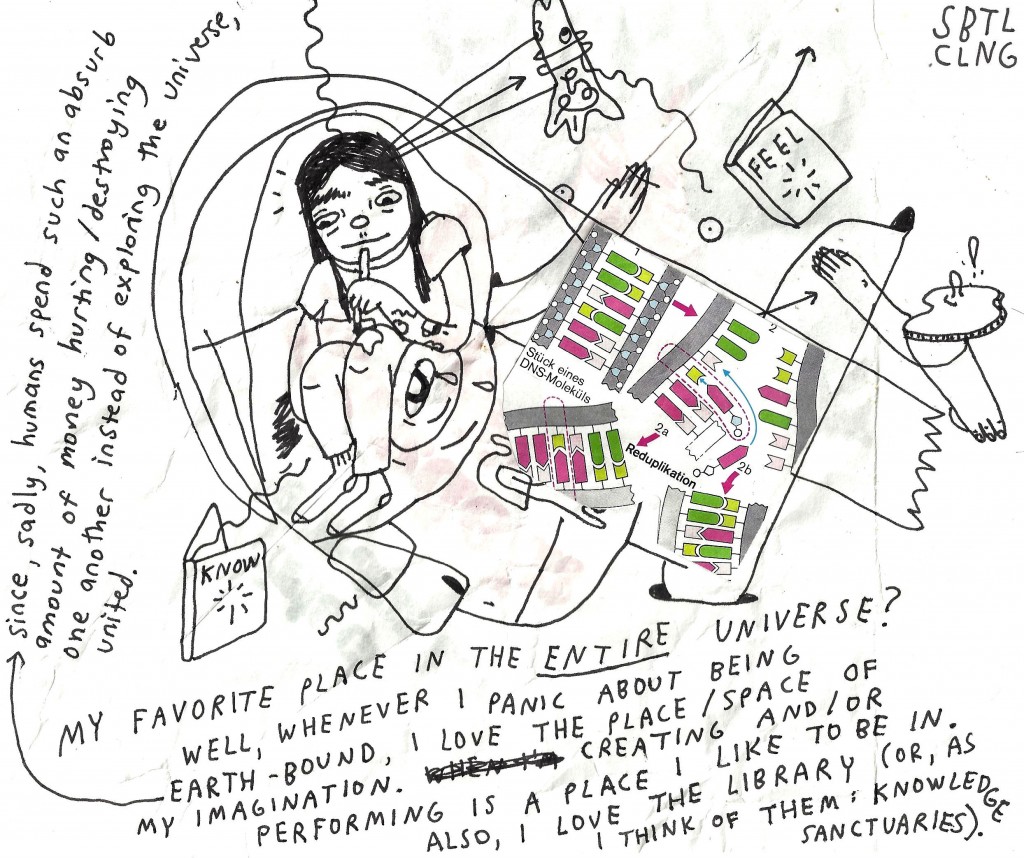 SBTL
CLNG
since, sadly, humans spend such an absurb
amount of money hurting/destroying
one another instead of exploring the universe,
united.
FEEL
1
2
Stück eines
DNS-Moleküls
2a
Reduplikation
2b
KNOW
MY FAVORITE PLACE IN THE ENTIRE UNIVERSE?
WELL, WHENEVER I PANIC ABOUT BEING
EARTH-BOUND, I LOVE THE PLACE/SPACE OF
MY IMAGINATION. CREATING AND/OR
PERFORMING IS A PLACE I LIKE TO BE IN.
ALSO, I LOVE THE LIBRARY (OR, AS
I THINK OF THEM: KNOWLEDGE
SANCTUARIES).